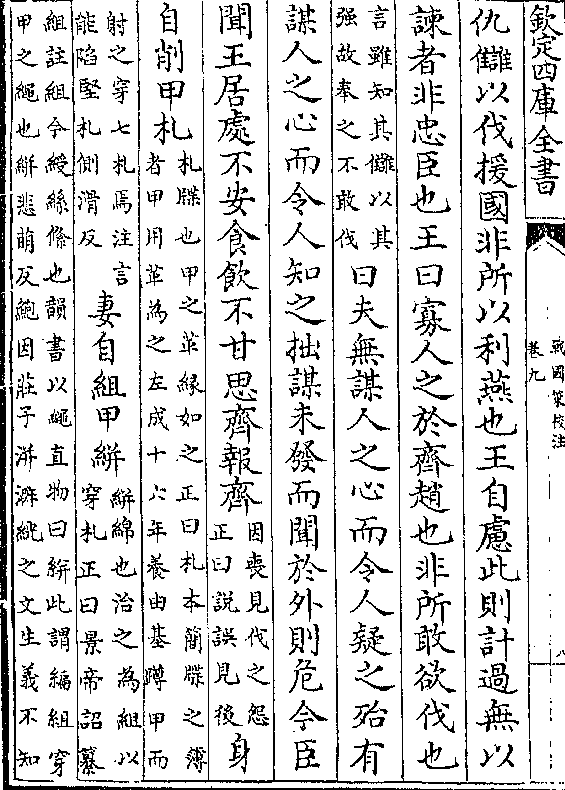 欽定四庫全書
戰國策校注
卷九
八
仇讎以伐援國非所以利燕也王自慮此則計過無以
諫者非忠臣也王曰寡人之於齊趙也非所敢欲伐也
言雖知其讎以其
强故奉之不敢伐
曰夫無謀人之心而令人疑之殆有
謀人之心而令人知之拙謀未發而聞於外則危今臣
聞王居處不安食飲不甘思齊報齊
因喪見伐之怨
正曰説誤見後
身
自削甲札
札牒也甲之革緣如之正曰札本簡牒之薄
者甲用革為之左成十六年養由基蹲甲而
射之穿七札焉注言
能陷堅札側滑反
妻自組甲絣
絣綿也治之為組以
穿札正曰景帝詔纂
組註組今綬絲絛也韻書以繩直物曰絣此謂編組穿
甲之繩也絣悲萌反鮑因莊子洴澼絖之文生義不知